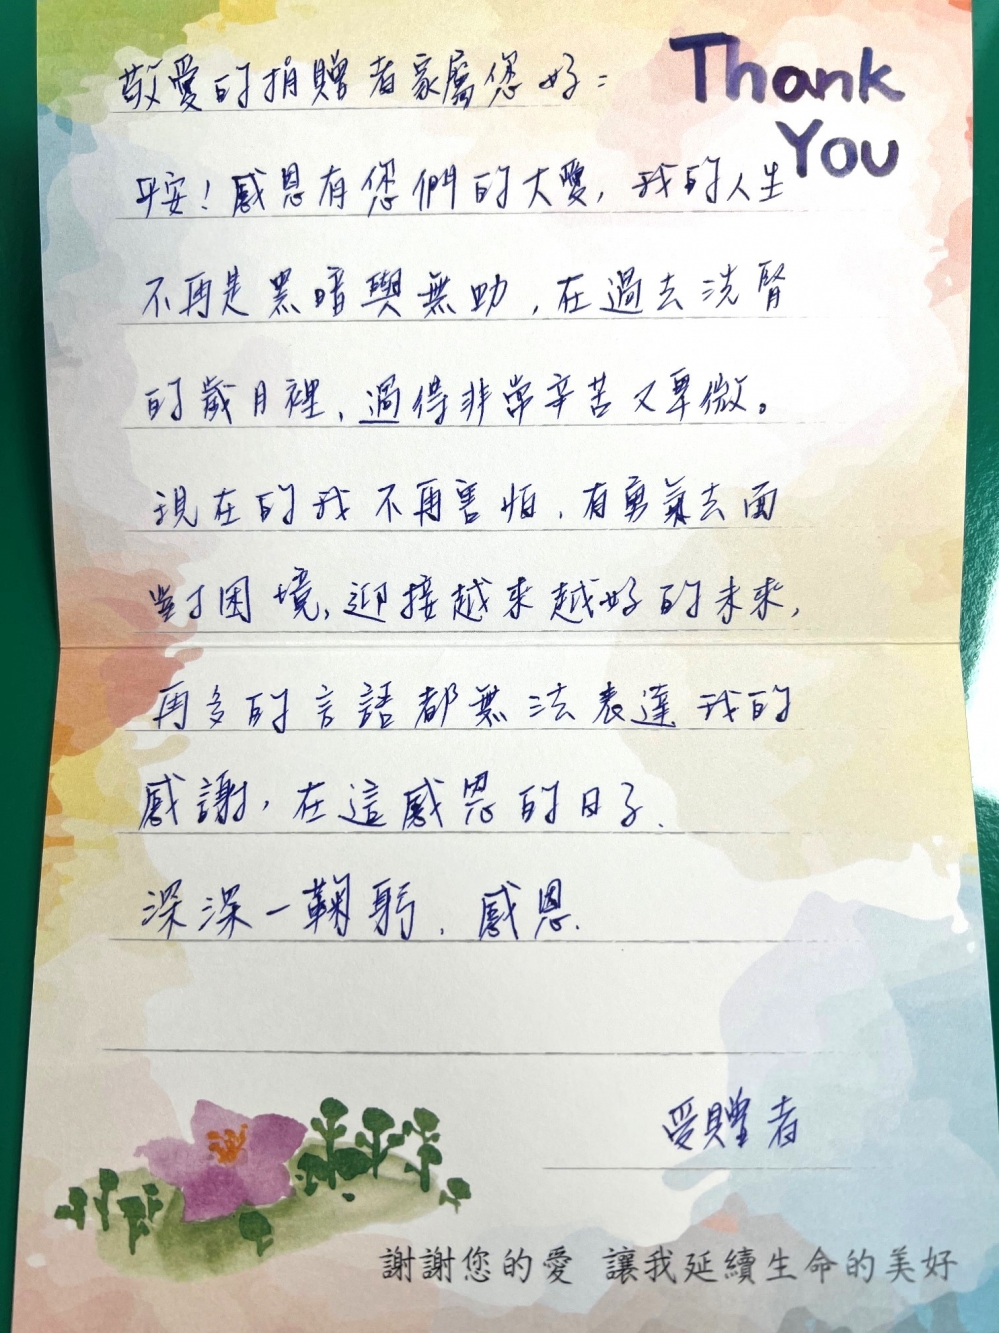 Thank
You
敬愛的捐贈者家屬您好：
平安！感恩有您們的大愛，我的人生
不再是黑暗與無助，在過去洗腎
的歲月裡，過得非常辛苦又卑微。
現在的我不再害怕，有勇氣去面
對困境，迎接越來越好的未來，
再多的言語都無法表達我的
感謝，在這感恩的日子、
深深一鞠躬，感恩.
受贈者
謝謝您的愛 讓我延續生命的美好